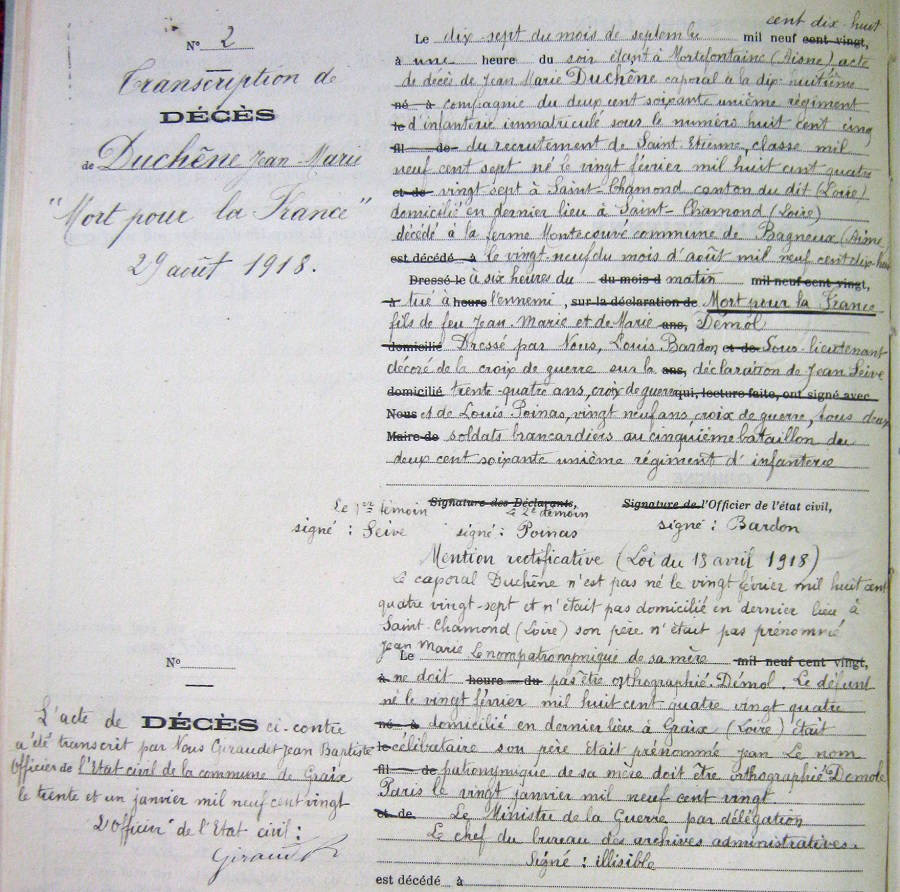 N° 2
Transcription de
DÉCÈS
de Duchêne Jean-Marie
"Mort pour la France"
29 août 1918.
cent dix-huit
Le dix-sept du mois de septembre mil neuf cent vingt,
à une heure du soir étant à Mortefontaine (Aisne) acte
de décès de Jean Marie Duchêne caporal à la dix huitième
né à compagnie du deux cent soixante unième régiment
le d'infanterie immatriculé sous le numéro huit cent cinq
fil de du recrutement de Saint-Etienne, classe mil
neuf cent sept né le vingt février mil huit cent quatre
et de vingt sept à Saint-Chamond canton du dit (Loire)
domicilié en dernier lieu à Saint-Chamond (Loire)
décédé à la ferme Montécouvé commune de Bagneux (Aisne
est décédé à le vingt-neuf du mois d'août mil neuf cent dix-huit
Dressé le à six heures du du mois d matin mil neuf cent vingt,
à tué à heure l'ennemi, sur la déclaration de Mort pour la France
fils de feu Jean-Marie et de Marie ans, Démol
domicilié Dressé par Nous, Louis Bardon et de Sous-lieutenant
décoré de la croix de guerre sur la ans, déclaration de Jean Seive
domicilié trente-quatre ans, croix de guerre qui, lecture faite, ont signé avec
Nous et de Louis Poinas, vingt neuf ans, croix de guerre, tous deux
Maire de soldats brancardiers au cinquième bataillon du
deux cent soixante unième régiment d'infanterie
Le 1er témoin Signature des Déclarants, Le 2e témoin Signature de l'Officier de l'état civil,
signé : Seive signé : Poinas signé : Bardon
Mention rectificative (Loi du 18 avril 1918)
Le caporal Duchêne n'est pas né le vingt février mil huit cent
quatre vingt-sept et n'était pas domicilié en dernier lieu à
Saint-Chamond (Loire) son père n'était pas prénommé
Jean Marie
Le Le nom patronymique de sa mère mil neuf cent vingt,
à ne doit heure du pas être orthographié Démol. Le défunt
né le vingt février mil huit cent quatre vingt quatre
né à domicilié en dernier lieu à Graix (Loire) était
le célibataire son père était prénommé Jean Le nom
fil de patronymique de sa mère doit être orthographié Demole
Paris le vingt janvier mil neuf cent vingt.
et de Le Ministre de la Guerre par délégation
Le chef du bureau des archives administratives.
Signé : illisible
est décédé à
N°
L'acte de DÉCÈS ci-contre
a été transcrit par Nous Giraudet Jean Baptiste
Officier de l'Etat civil de la commune de Graix
le trente et un janvier mil neuf cent vingt
L'Officier de l'Etat civil :